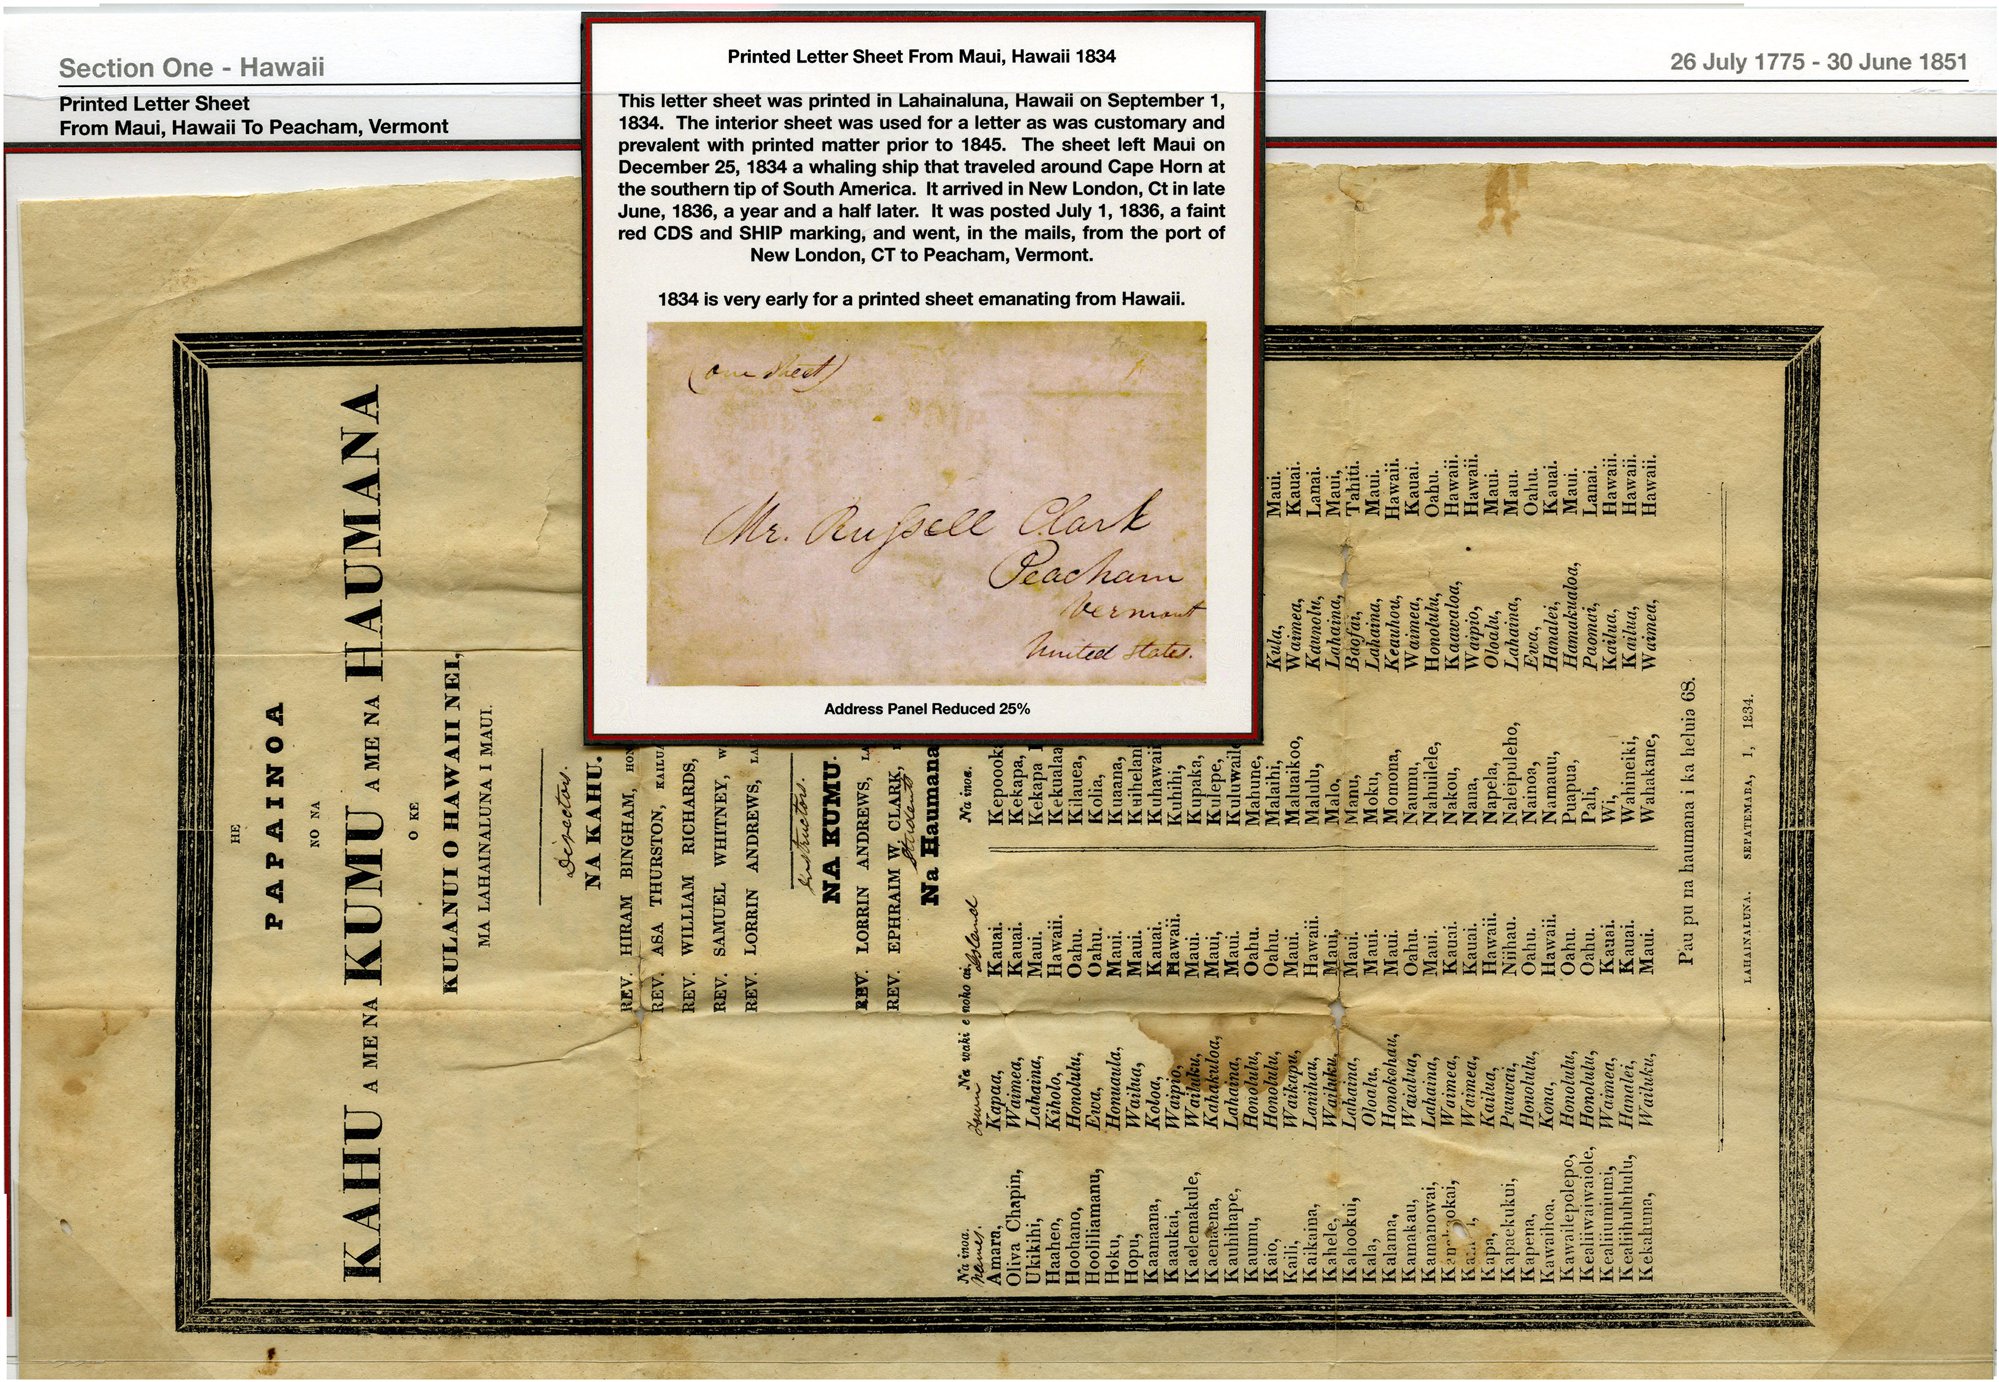 Section One - Hawaii
26 July 1775 - 30 June 1851
Printed Letter Sheet
From Maui, Hawaii To Peacham, Vermont
Printed Letter Sheet From Maui, Hawaii 1834
This letter sheet was printed in Lahainaluna, Hawaii on September 1,
1834. The interior sheet was used for a letter as was customary and
prevalent with printed matter prior to 1845. The sheet left Maui on
December 25, 1834 a whaling ship that traveled around Cape Horn at
the southern tip of South America. It arrived in New London, Ct in late
June, 1836, a year and a half later. It was posted July 1, 1836, a faint
red CDS and SHIP marking, and went, in the mails, from the port of
New London, CT to Peacham, Vermont.
1834 is very early for a printed sheet emanating from Hawaii.
(One Sheet)
Mr. Russell Clark
Peacham
Vermont
United States.
Address Panel Reduced 25%
HE
PAPAINOA
NO NA
KAHU A ME NA KUMU A ME NA HAUMANA
O KE
KULANUI O HAWAII NEI,
MA LAHAINALUNA I MAUI.
Directors.
NA KAHU.
REV. HIRAM BINGHAM, HON
REV. ASA THURSTON, KAILUA
REV. WILLIAM RICHARDS,
REV. SAMUEL WHITNEY, W
REV. LORRIN ANDREWS, LA
Instructors.
NA KUMU.
REV. LORRIN ANDREWS, LA
REV. EPHRAIM W. CLARK,
Students
Na Haumana
Na inoa. Na wahi e noho ai. Na inoa.
Names. Town Island
Amara, Kapaa, Kauai. Kepoooka
Oliva Chapin, Waimea, Kauai. Kekapa,
Ukikihi, Lahaina, Maui. Kekapa
Haaheo, Kiholo, Hawaii. Kekualaa
Hoohano, Honolulu, Oahu. Kilauea,
Hooliliamanu, Ewa, Oahu. Kolia,
Hoku, Honuaula, Maui. Kuaana,
Hopu, Wailua, Maui. Kuihelani
Kaanaana, Koloa, Kauai. Kuhawaii
Kaaukai, Waipio, Hawaii. Kuhihi,
Kaelemakule, Wailuku, Maui. Kupaka,
Kaenaena, Kahakuloa, Maui, Kulepe,
Kauhihape, Lahaina, Maui. Kuluwaile
Kaumu, Honolulu, Oahu. Mahune,
Kaio, Honolulu, Oahu. Malaihi, Kula, Maui.
Kaili, Waikapu, Maui. Maluaikoo, Waimea, Kauai.
Kaikaina, Lanihau, Hawaii. Malulu, Kaunolu, Lanai.
Kahele, Wailuku, Maui, Malo, Lahaina, Maui,
Kahookui, Lahaina, Maui. Manu, Baofai, Tahiti.
Kala, Oloalu, Maui. Moku, Lahaina, Maui.
Kalama, Honokohau, Maui. Momona, Keauhou, Hawaii.
Kamakau, Waialua, Oahu. Naumu, Waimea, Kauai.
Kamanowai, Lahaina, Maui. Nahuilele, Honolulu, Oahu.
Waimea, Kauai. Nakou, Kaawaloa, Hawaii.
Waimea, Kauai. Nana, Waipio, Hawaii.
Kapa, Kailua, Hawaii. Napela, Oloalu, Maui.
Kapaekukui, Puuwai, Niihau. Naleipuleho, Lahaina, Maui.
Kapena, Honolulu, Oahu. Nainoa, Ewa, Oahu.
Kawaihoa, Kona, Hawaii. Namauu, Hanalei, Kauai.
Kawailepolepo, Honolulu, Oahu. Puapua, Hamakualoa, Maui.
Kealiiwaiwaiole, Honolulu, Oahu. Pali, Paomai, Lanai.
Kealiiumiumi, Waimea, Kauai. Wi, Kailua, Hawaii.
Kealiihuhuhulu, Hanalei, Kauai. Wahineiki, Kailua, Hawaii.
Kekahuna, Wailuku, Maui. Wahakane, Waimea, Hawaii.
Pau pu na haumana i ka heluia 68.
LAHAINALUNA. SEPATEMABA, 1, 1834.